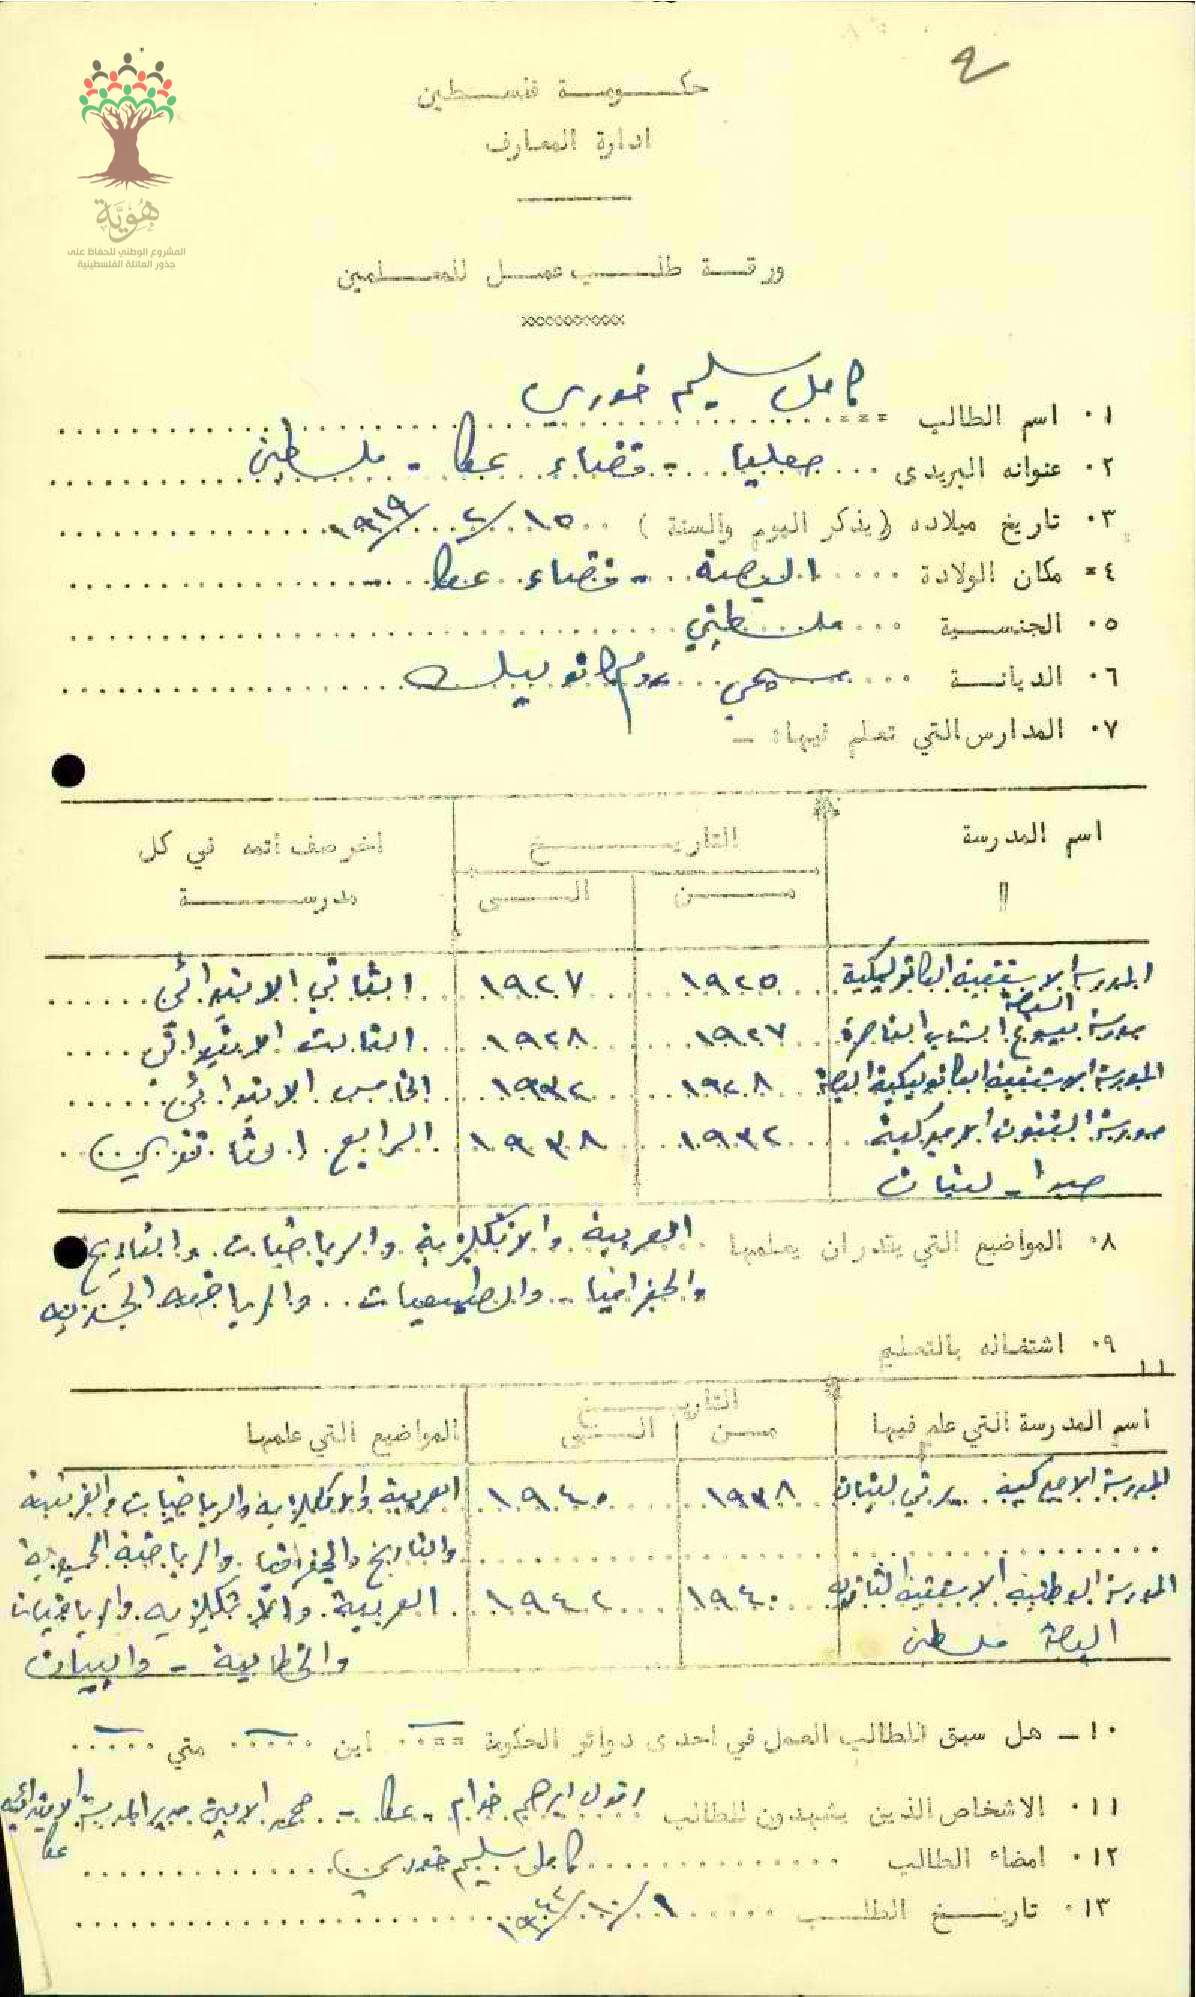 ٢
هُوِيَّة
المشروع الوطني للحفاظ على
جذور العائلة الفلسطينية
حكومة فلسطين
ادارة المعارف
ورقة طلب عمل للمعلمين
٠١ اسم الطالب كامل سليم خوري
٠٢ عنوانه البريدى معليا - قضاء عكا - فلسطين
٠٣ تاريخ ميلاده (يذكر اليوم والسنة) ١٥/٢/١٩١٩
٠٤ مكان الولادة البصة - قضاء عكا
٠٥ الجنسية فلسطيني
٠٦ الديانة مسيحي روم كاثوليك
٠٧ المدارس التي تعلم فيها: -
اسم المدرسة التاريخ اخر صف اتمه في كل
من الى مدرسة
المدرسة الاسقفية الكاثوليكية ١٩٢٥ ١٩٢٧ الثاني الابتدائي
البصة
مدرسة يسوع الشاب الناصرة ١٩٢٧ ١٩٢٨ الثالث الابتدائي
المدرسة الاسقفية الكاثوليكية البصة ١٩٢٨ ١٩٣٢ الخامس الابتدائي
مدرسة الفنون الاميركية ١٩٣٢ ١٩٣٨ الرابع الثانوي
صيدا - لبنان
٠٨ المواضيع التي يقدران يعلمها العربية والانكليزية والرياضيات والتاريخ
والجغرافيا - والطبيعيات والرياضه البدنيه
٠٩ اشتغاله بالتعليم
اسم المدرسة التي علم فيها التاريخ المواضيع التي علمها
من الى
المدرسة الاميركية لبنان ١٩٣٨ ١٩٤٠ العربية والانكليزية والرياضيات والفرنسية
والتاريخ والجغرافيا والرياضة
المدرسة الوطنية الاسقفية الثانوية ١٩٤٠ ١٩٤٢ العربية والانكليزيه والرياضيات
البصة فلسطين والخطابة - والبيان
١٠- هل سبق للطالب العمل في احدى دوائر الحكومة اين متي
٠١١ الاشخاص الذين يشهدون للطالب ابرهيم خوام - عكا - محمد الامين مدير المدرسة الابتدائيه
عكا
٠١٢ امضاء الطالب كامل سليم خوري
٠١٣ تاريخ الطلب ١/١٠/١٩٤٢